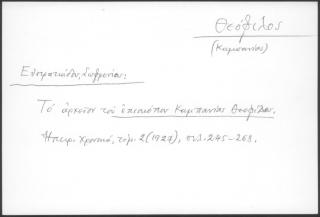 Θεόφιλος
(Καμπανίας)
Εὐστρατιάδου, Σωφρονίου:
Τὸ ἀρχεῖον τοῦ ἐπισκόπου Καμπανίας Θεοφίλου.
Ἠπειρ. Χρονικά, τόμ. 2 (1927), σελ. 245-268.